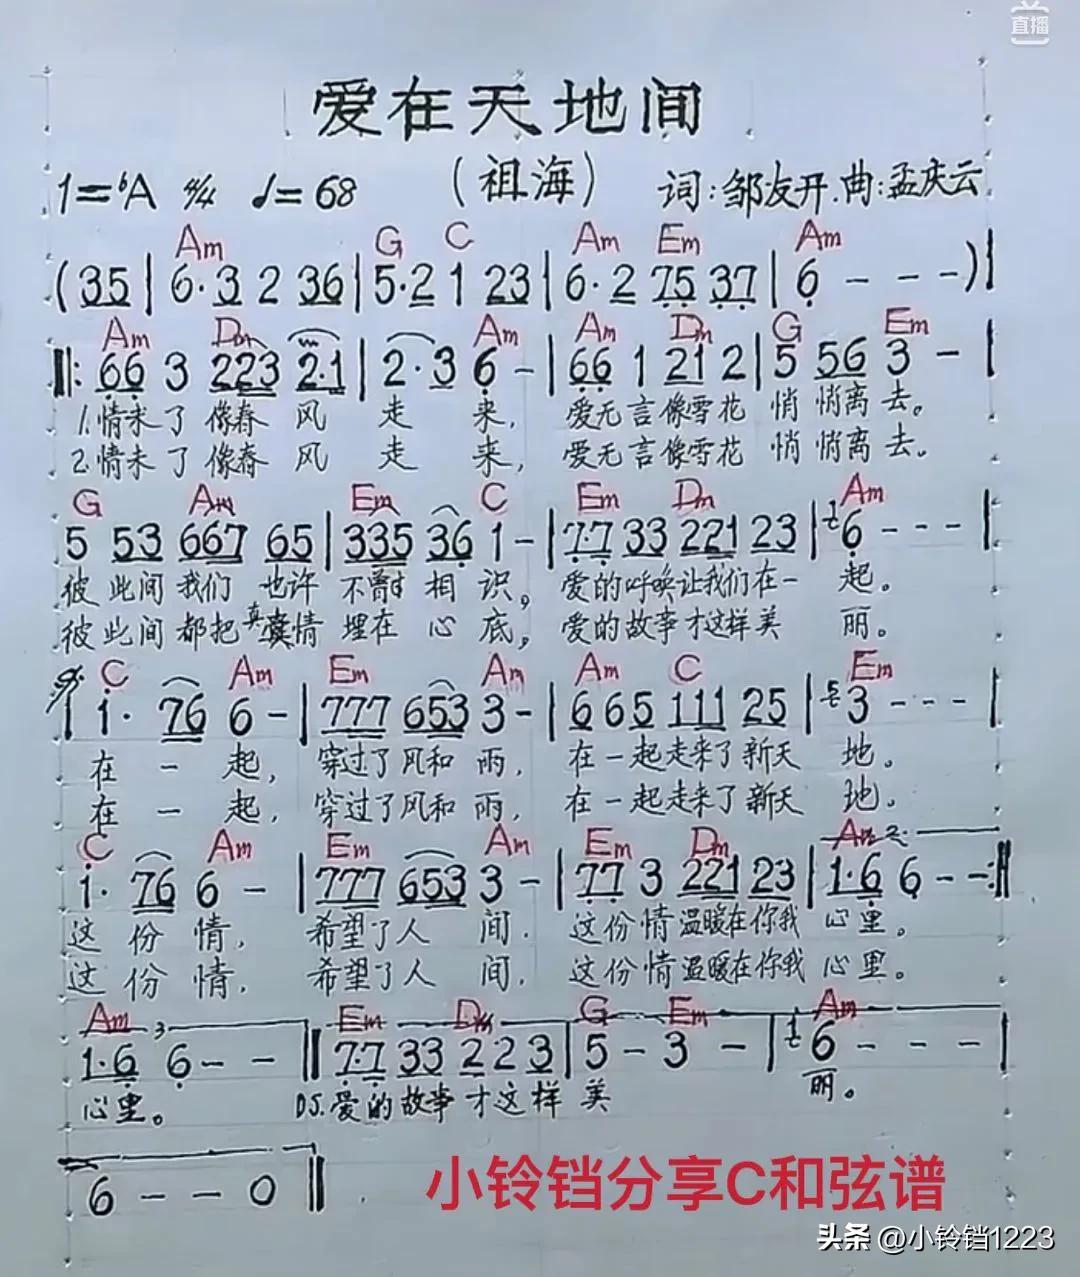 直播
爱在天地间
1=ᵇA 4/4 ♩=68 (祖海) 词:邹友开.曲:孟庆云
Am G C Am Em Am
(35|6·3 2 36|5·2 1 23|6·2 75 37|6 - - -)|
Am Dm Am Am Dm G Em
‖:66 3 223 2·1|2·3 6 -|66 1 21 2|5 56 3 -|
1.情未了像春风走来,爱无言像雪花悄悄离去。
2.情未了像春风走来,爱无言像雪花悄悄离去。
G Am Em C Em Dm Am
5 53 667 65|335 36 1 -|7·7 33 221 23|6 - - -|
彼此间我们也许不曾相识,爱的呼唤让我们在一起。
彼此间都把真情埋在心底,爱的故事才这样美丽。
C Am Em Am Am C Em
|1· 76 6 -|777 653 3 -|6 65 111 25|3 - - -|
在一起,穿过了风和雨,在一起走来了新天地。
在一起,穿过了风和雨,在一起走来了新天地。
C Am Em Am Em Dm Am 2.
1· 76 6 -|777 653 3 -|77 3 221 23|1·6 6 - -:‖
这份情,希望了人间.这份情温暖在你我心里。
这份情,希望了人间,这份情温暖在你我心里。
Am 3 Em Dm G Em Am
1·6 6 - -‖7·7 33 2 2 3|5 - 3 -|6 - - -|
心里。 D.S.爱的故事才这样美丽。
6 - - 0‖
小铃铛分享C和弦谱
头条 @小铃铛1223